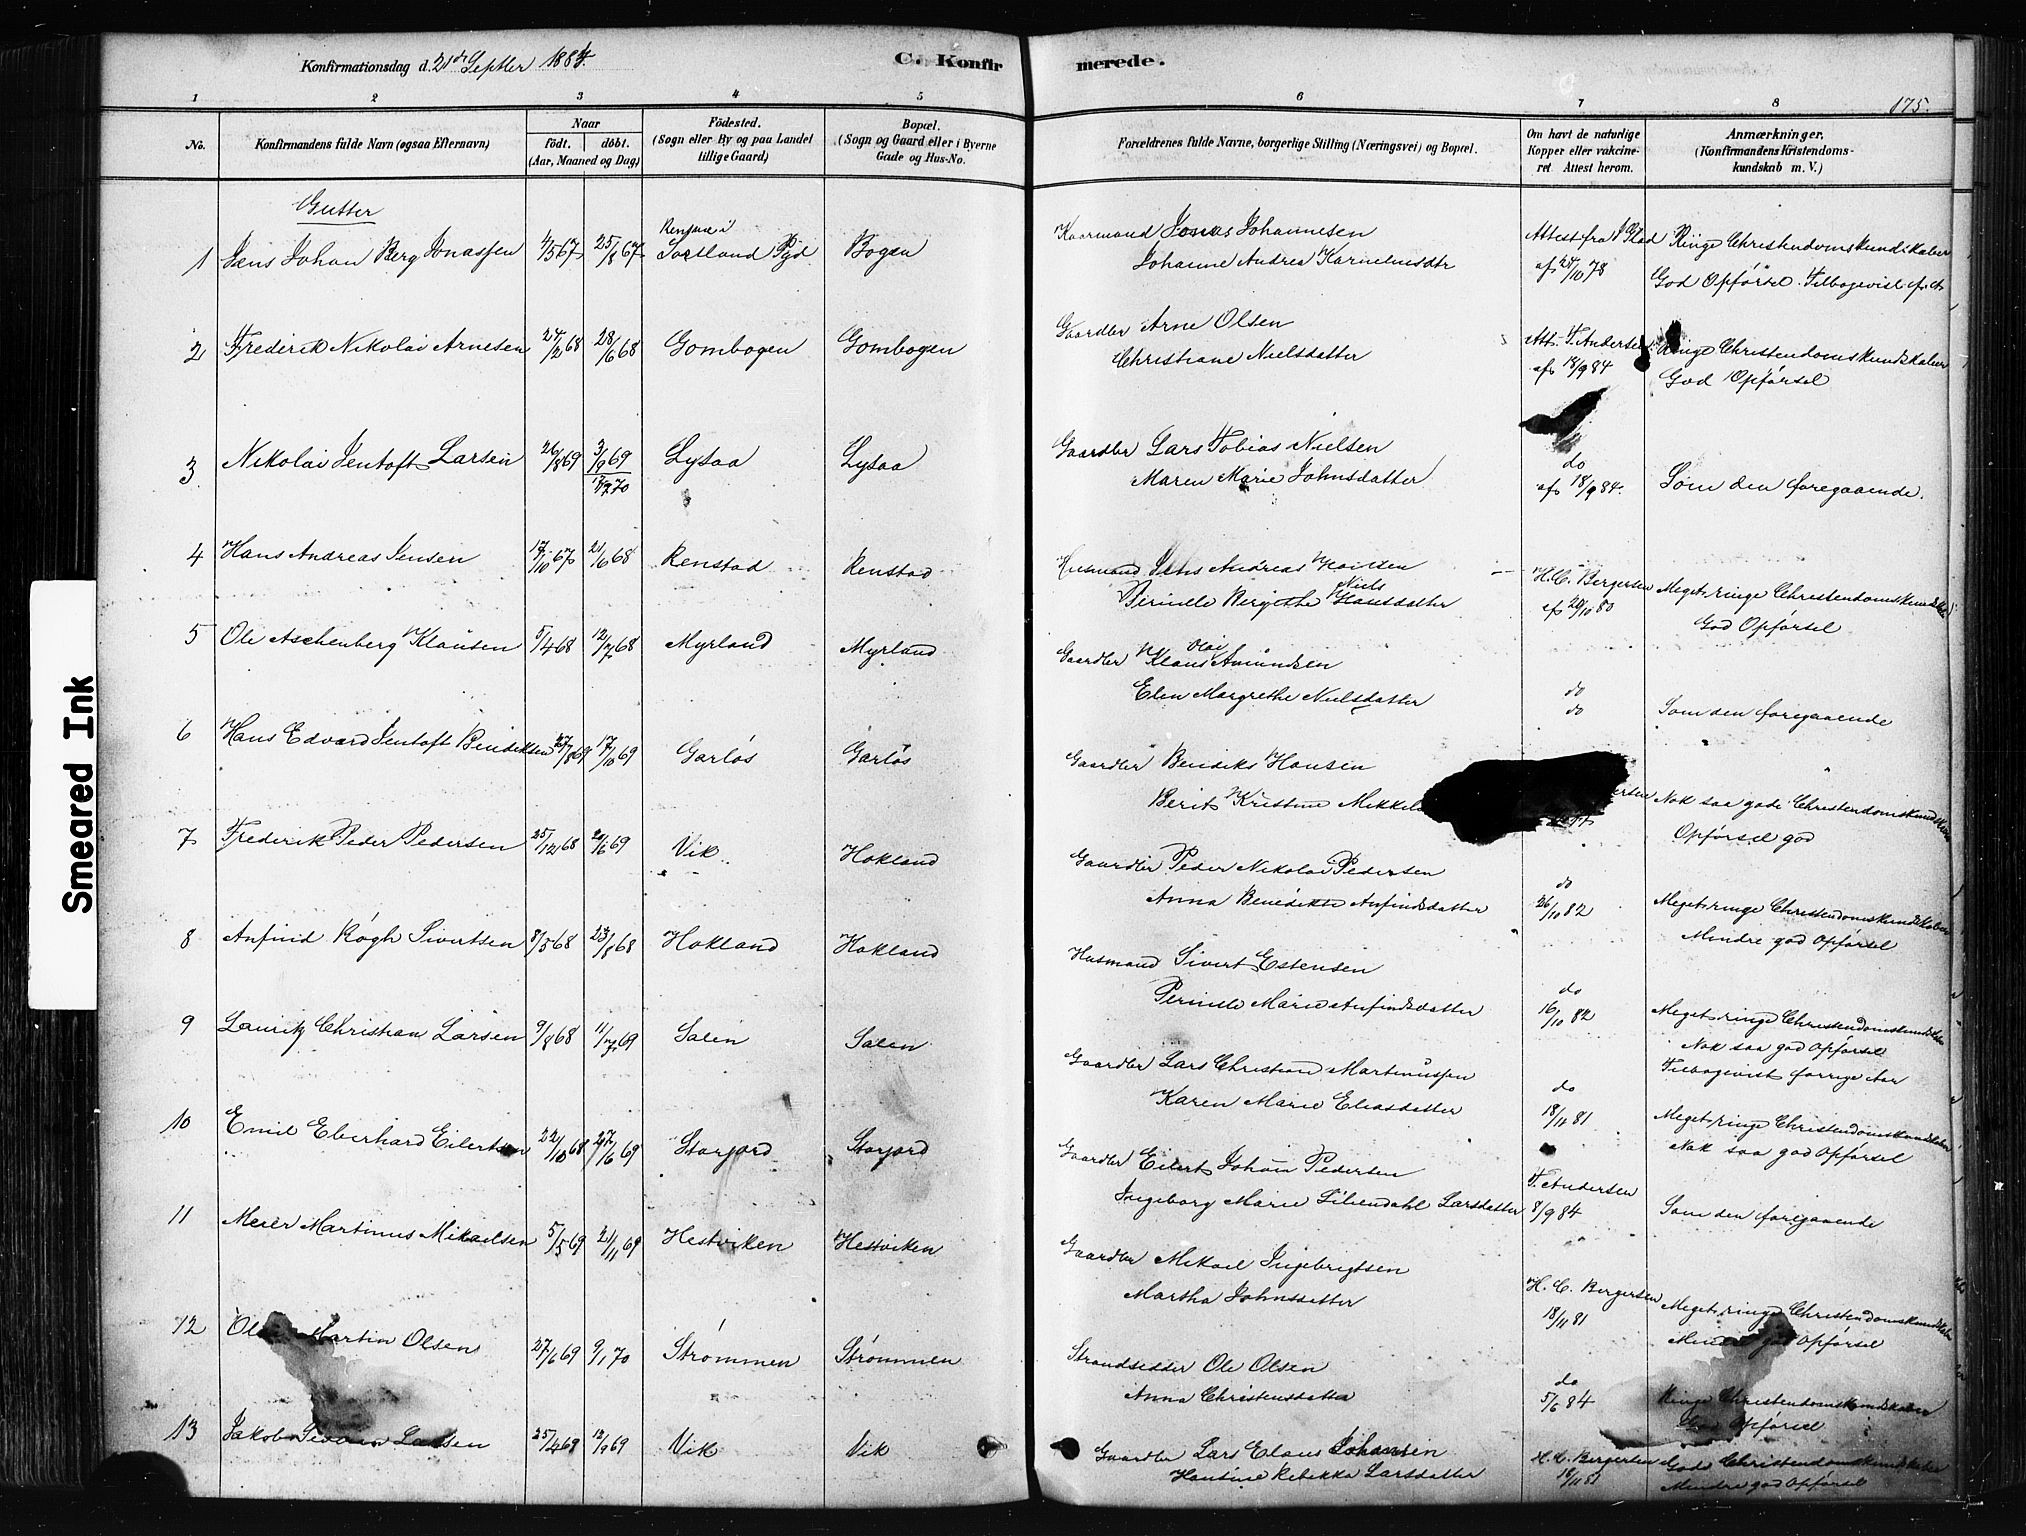 Konfirmationsdag d. 21de Septber 1884.
C. Konfir
merede.
175.
1 2 3 4 5 6 7 8
No.
Konfirmandens fulde Navn (ogsaa Efternavn)
Naar
födt. döbt.
(Aar, Maaned og Dag)
Födested.
(Sogn eller By og paa Landet
tillige Gaard)
Bopæl.
(Sogn og Gaard eller i Byerne
Gade og Hus-No.
Forældrenes fulde Navne, borgerlige Stilling (Næringsvei) og Bopæl.
Om havt de naturlige
Kopper eller vakcine-
ret Attest herom.
Anmærkninger.
(Konfirmandens Kristendoms-
kundskab m. V.)
Smeared Ink
Gutter
1 Jens Johan Berg Jonassen 4/5 67 25/8 67 Sortland Pgd Bogen
Jonas Johannesen
Johanne Andrea Kornelius dtr
Attest fra
af 24/10 78
Ringe Christendomskundskaber
God Opförsel. Tilbagevist
2 Frederik Nikolai Arnesen 24/2 68 28/6 68 Gombogen Gombogen
Gaardbr Arne Olsen
Christiane Nielsdatter
Att. T. Andersen
af 18/9 84
Ringe Christendomskundskaber
God Opförsel
3 Nikolai Jentoft Larsen 26/8 69 3/9 69 Lysaa Lysaa
17/7 70
Gaardbr Lars Tobias Nielsen
Maren Marie Johnsdatter
do
af 18/9 84.
Som den foregaaende.
4 Hans Andreas Jensen 17/10 67 21/6 68 Renstad Renstad
Husmand Jens Andreas
Pernille Bergithe Niels Hansdatter
H. C. Bergersen
af 20/10 80
Meget ringe Christendomskundskab
God Opförsel
5 Ole Aschenberg Klausen 5/4 68 12/7 68 Myrland Myrland
Gaardbr Klaus Olai Amundsen
Elen Margrethe Nielsdatter
do
do
Som den foregaaende
6 Hans Edvard Jentoft Bendiksen 27/8 69 17/10 69 Garlös Garlös
Gaardbr Bendiks Hansen
Berit Kristine
Nok saa gode Christendomskundskaber
Opförsel god
7 Frederik Peder Pedersen 25/12 68 20/6 69 Vik Hokland
Gaardbr Peder Nikolai Pedersen
Anna Benedikte Anfindsdatter
do
26/10 82
Meget ringe Christendomskundskaber
Mindre god Opförsel
8 Anfind Rögh Sivertsen 8/5 68 23/8 68 Hokland Hokland
Husmand Sivert Estensen
Pernille Marie Anfindsdatter
do
16/10 82
Meget ringe Christendomskundskaber
Nok saa god Opförsel
Tilbagevist forrige Aar
9 Lauritz Christian Larsen 9/8 68 11/7 69 Salen Salen
Gaardbr Lars Christian Martinussen
Karen Marie Eliasdatter
do
18/11 81
Meget ringe Christendomskundskaber
Nok saa god Opförsel
10 Emil Eberhard Eilertsen 22/10 68 27/6 69 Storjord Storjord
Gaardbr Eilert Johan Pedersen
Ingeborg Marie Liliendahl Larsdatter
T. Andersen
8/9 84
Som den foregaaende
11 Meier Martinus Mikaelsen 5/5 69 21/11 69 Hestviken Hestviken
Gaardbr Mikael Ingebrigtsen
Martha Johnsdatter
H. C. Bergersen
18/11 81
Meget ringe Christendomskundskaber
Mindre god Opförsel
12 Martin Olsen 27/6 69 9/1 70 Strömmen Strömmen
Strandsidder Ole Olsen
Anna Christensdatter
do
5/6 84
Ringe Christendomskundskaber
God Opförsel
13 Jakob Larsen 25/4 69 12/9 69 Vik Vik
Gaardbr Lars Elaus Johansen
Hantine Rebekka Larsdatter
H. C. Bergersen
18/11 81
Gode Christendomskundskaber
Mindre god Opförsel